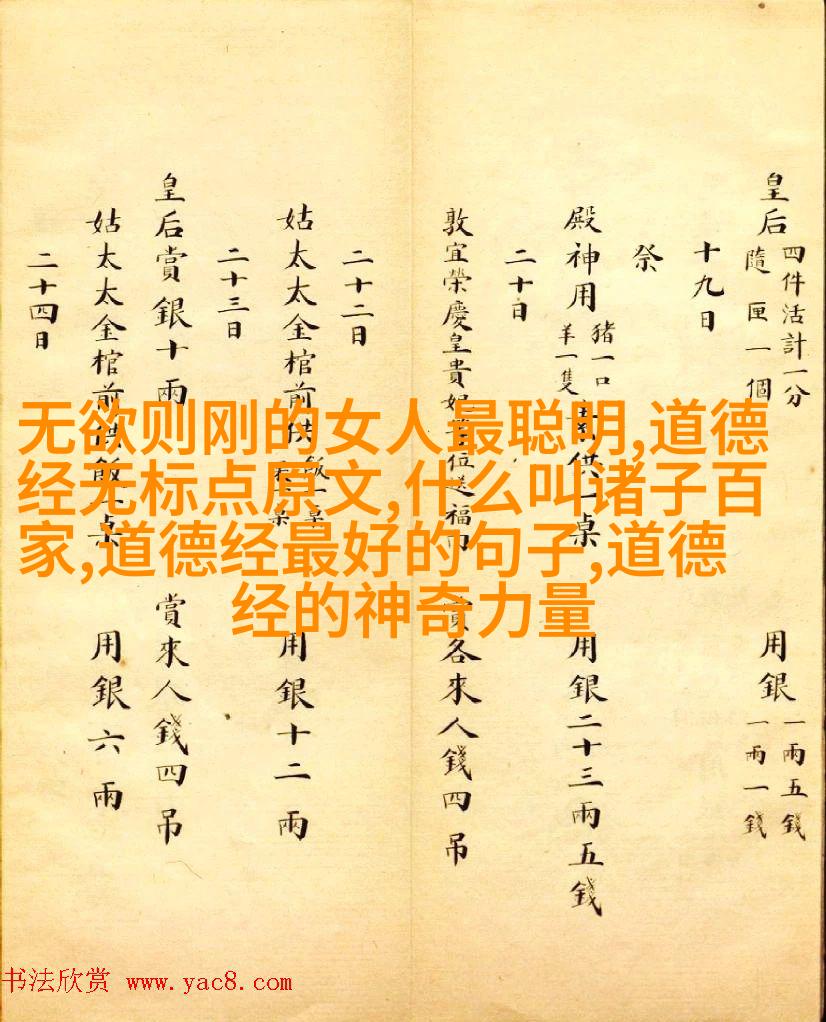 皇后
四件活計一分
隨匣一個
用銀
一兩五錢
一兩一錢
十九日
祭
殿神用
豬一口
羊一隻
供一桌
用銀二十三兩五錢
二十日
敦宜榮慶皇貴妃
位送福
賞各來人錢四吊
二十二日
姑太太金棺前供
飯一桌
用銀十二兩
二十三日
皇后賞銀十兩
賞來人錢四吊
姑太太金棺前供飯一桌
用銀六兩
二十四日
无欲则刚的女人最聪明,道德
经无标点原文,什么叫诸子百
家,道德经最好的句子,道德
经的神奇力量
书法欣赏 www.yac8.com